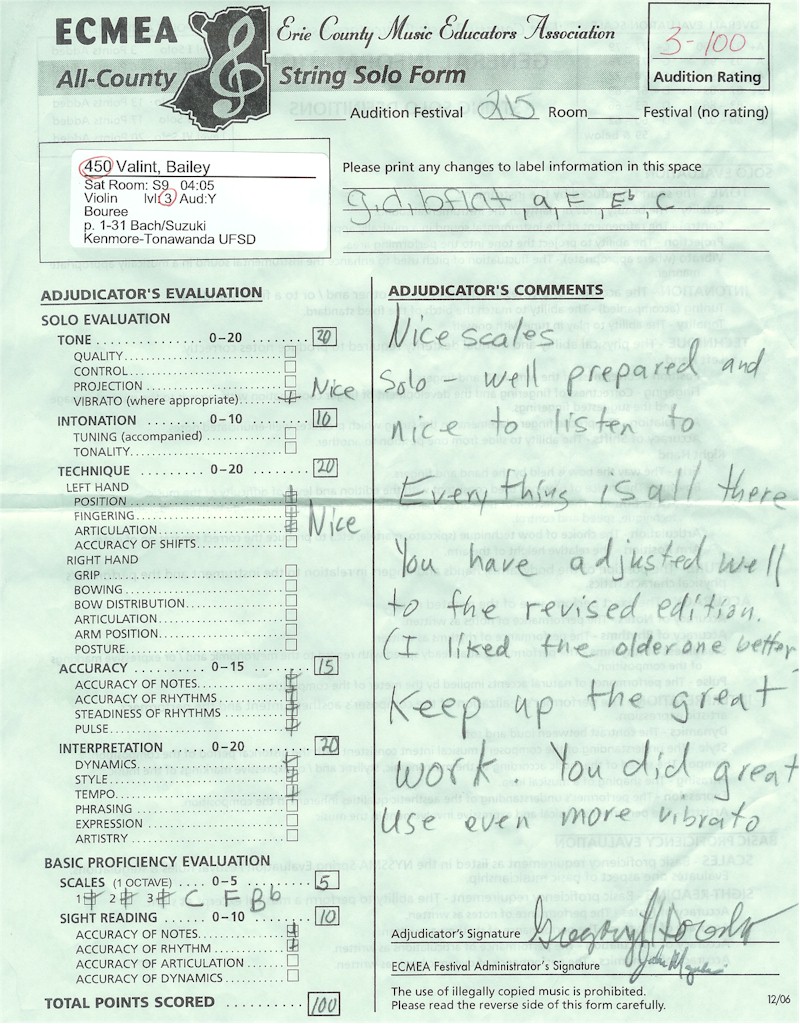 ECMEA
Erie County Music Educators Association
All-County String Solo Form
3-100
Audition Rating
Audition Festival 215 Room Festival (no rating)
450 Valint, Bailey
Sat Room: S9 04:05
Violin lvl:3 Aud:Y
Bouree
p. 1-31 Bach/Suzuki
Kenmore-Tonawanda UFSD
Please print any changes to label information in this space
g, d, bflat, a, F, Eb, C
ADJUDICATOR'S EVALUATION
SOLO EVALUATION
TONE 0–20 20
QUALITY
CONTROL
PROJECTION
VIBRATO (where appropriate) + Nice
INTONATION 0–10 10
TUNING (accompanied)
TONALITY
TECHNIQUE 0–20 20
LEFT HAND
POSITION +
FINGERING +
ARTICULATION + Nice
ACCURACY OF SHIFTS
RIGHT HAND
GRIP
BOWING
BOW DISTRIBUTION
ARTICULATION
ARM POSITION
POSTURE
ACCURACY 0–15 15
ACCURACY OF NOTES +
ACCURACY OF RHYTHMS +
STEADINESS OF RHYTHMS +
PULSE +
INTERPRETATION 0–20 20
DYNAMICS +
STYLE +
TEMPO +
PHRASING
EXPRESSION
ARTISTRY
BASIC PROFICIENCY EVALUATION
SCALES (1 OCTAVE) 0–5 5
1 + 2 + 3 + C F Bb
SIGHT READING 0–10 10
ACCURACY OF NOTES +
ACCURACY OF RHYTHM +
ACCURACY OF ARTICULATION
ACCURACY OF DYNAMICS
TOTAL POINTS SCORED 100
ADJUDICATOR'S COMMENTS
Nice scales
Solo – well prepared and
nice to listen to
Everything is all there
You have adjusted well
to the revised edition.
(I liked the older one better
Keep up the great
work. You did great
Use even more vibrato
Adjudicator's Signature
ECMEA Festival Administrator's Signature
The use of illegally copied music is prohibited.
Please read the reverse side of this form carefully.
12/06